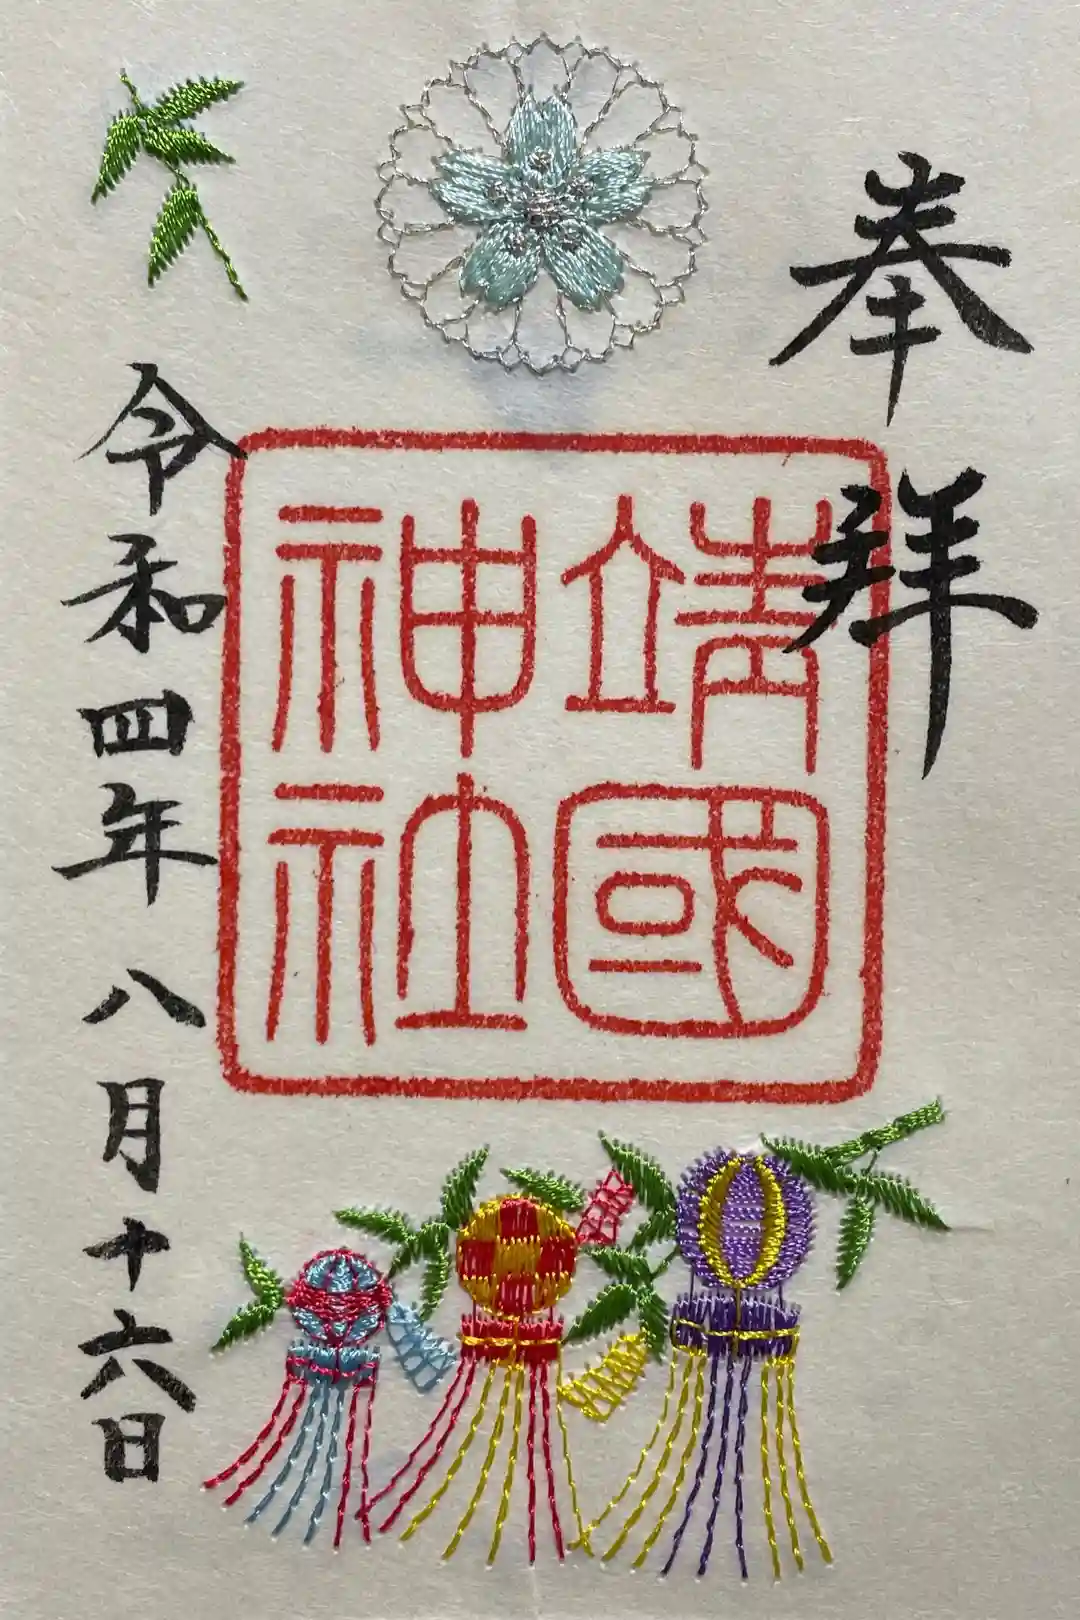 奉拝
靖國
神社
令和四年八月十六日